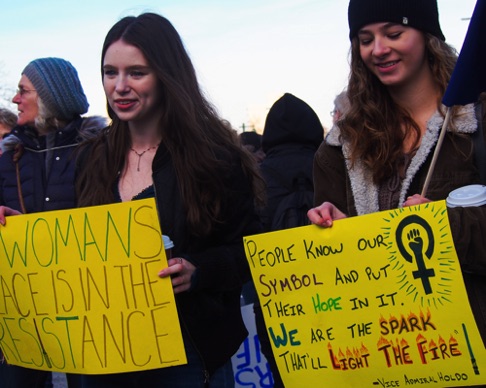 WOMANS
ACE IS IN THE
RESISTANCE
PEOPLE KNOW OUR
SYMBOL AND PUT
THEIR HOPE IN IT.
WE ARE THE SPARK
THAT'LL LIGHT THE FIRE!
-VICE ADMIRAL HOLDO